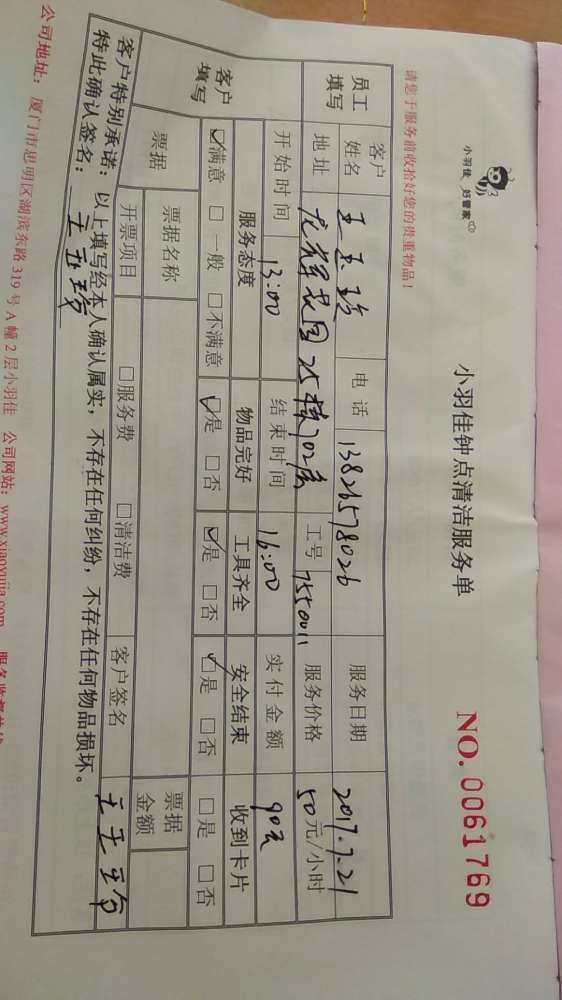 小羽佳 好管家
小羽佳钟点清洁服务单
NO. 0061769
请您于服务前收拾好您的贵重物品!
员工填写
客户姓名 王玉珍 电话 13826578026 服务日期 2017.7.21
地址 龙辉花园25栋702房 工号 7550011 服务价格 50元/小时
开始时间 13:00 结束时间 16:00 实付金额 90元
客户填写
服务态度 物品完好 工具齐全 安全结束 收到卡片
☑满意 □一般 □不满意 ☑是 □否 ☑是 □否 ☑是 □否 □是 □否
票据 票据名称 票据金额
开票项目 □服务费 □清洁费 客户签名
客户特别承诺:以上填写经本人确认属实,不存在任何纠纷,不存在任何物品损坏。
特此确认签名:
公司地址:厦门市思明区湖滨东路319号A幢2层小羽佳 公司网站:www.xiaoyujia.com